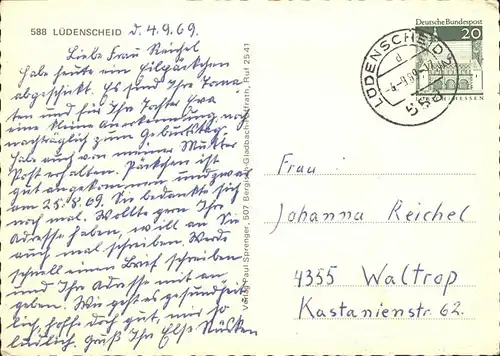 588 LÜDENSCHEID d. 4.9.69.
Liebe Frau Reichel
habe heute ein Eilpäckchen
abgeschickt. Es sind Ihre Toma-
ten und für Ihr Tochter Eva
eine kleine Anerkennung, so
nachträglich zum Geburtstag.
Habe auch von meiner Mutter
Post erhalten. Päckchen ist
gut angekommen und zwar
am 28.8.69. Sie bedankte sich
noch mal. Wollte gern Ihr
Adresse haben, will an Sie
auch mal schreiben. Werde
schnell einen Brief schreiben
und Ihr Adresse mit an
geben. Wie geht es gesundheit
lich, hoffe doch gut, nur so
ludlich. Gruß Ihr Else Nüsken
Verlag Paul Sprenger, 507 Bergisch-Gladbach-Hoffrath, Ruf 25 41
Deutsche Bundespost
20
LÜDENSCHEID
588
Frau
Johanna Reichel
4355 Waltrop
Kastanienstr 62.